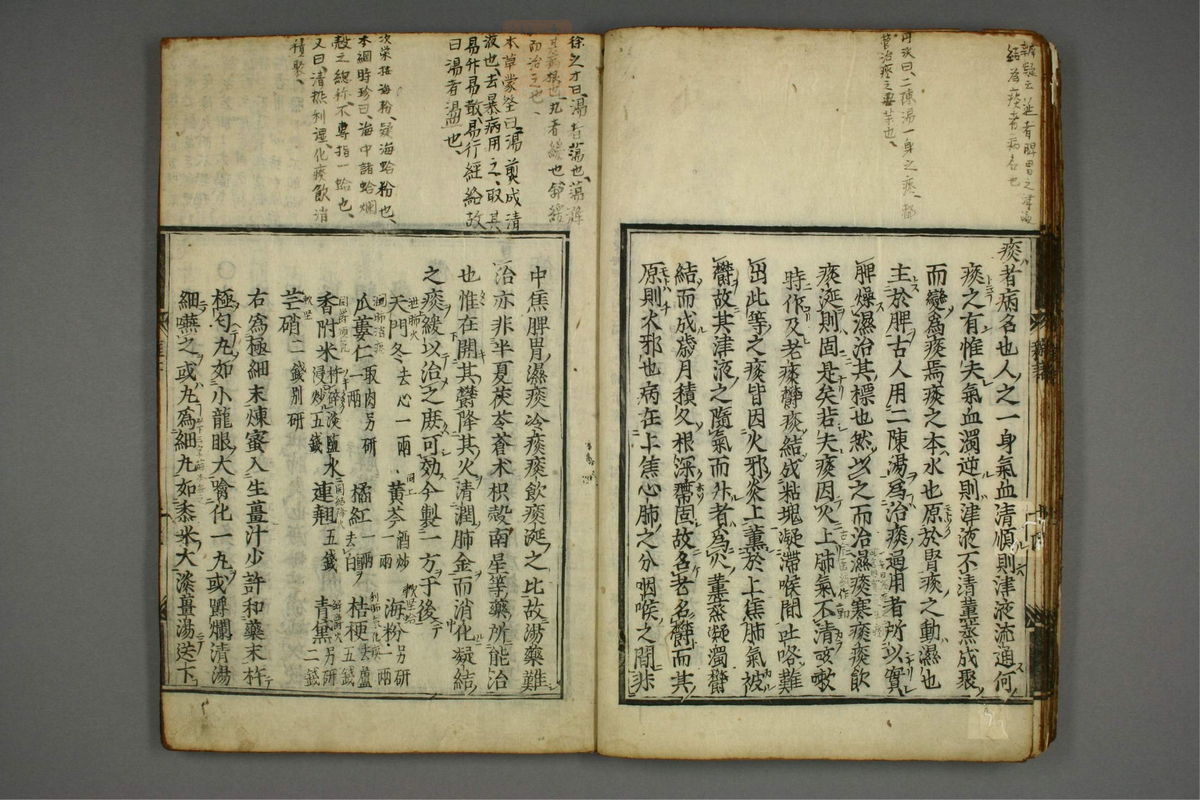 痰者病名也人之一身氣血清順則津液流通何
痰之有惟夫氣血濁逆則津液不清薰蒸成聚
而變爲痰焉痰之本水也原於腎痰之動濕也
主於脾古人用二陳湯爲治痰通用者所以實
脾燥濕治其標也然以之而治濕痰寒痰痰飲
痰涎則固是矣若夫痰因火上肺氣不清咳嗽
時作及老痰鬱痰結成粘塊凝滯喉間吐咯難
出此等之痰皆因火邪炎上薰於上焦肺氣被
鬱故其津液之隨氣而升者爲火薰蒸凝濁鬱
結而成歲月積久根深蔕固故名老名鬱而其
原則火邪也病在上焦心肺之分咽喉之間非
徐之才曰、湯者蕩也、
而治之也、
本草蒙筌曰、湯煎成清
液也、去暴病用之、取其
易升易散、易行經絡故
曰湯者湯也、
次柴按海粉、疑海蛤粉也、
本綱時珍曰、海中諸蛤爛
殼之總称、不專指一蛤也、
又曰、清熱利濕、化痰飲消
積聚、
中焦脾胃濕痰冷痰痰飲痰涎之比故湯藥難
治亦非半夏茯苓蒼朮枳殼南星等藥所能治
也惟在開其鬱降其火清潤肺金而消化凝結
之痰緩以治之庶可効今製一方于後
天門冬去心一兩 黃芩一兩酒炒 海粉另研一兩
瓜蔞仁取肉另研一兩 橘紅一兩去白 桔梗去蘆五錢
香附米杵碎淡鹽水浸炒五錢 連翹五錢 青黛另研二錢
芒硝二錢別研
右爲極細末煉蜜入生薑汁少許和藥末杵
極勻丸如小龍眼大噙化一丸或嚼爛清湯
細嚥之或丸爲細丸如黍米大淡薑湯送下